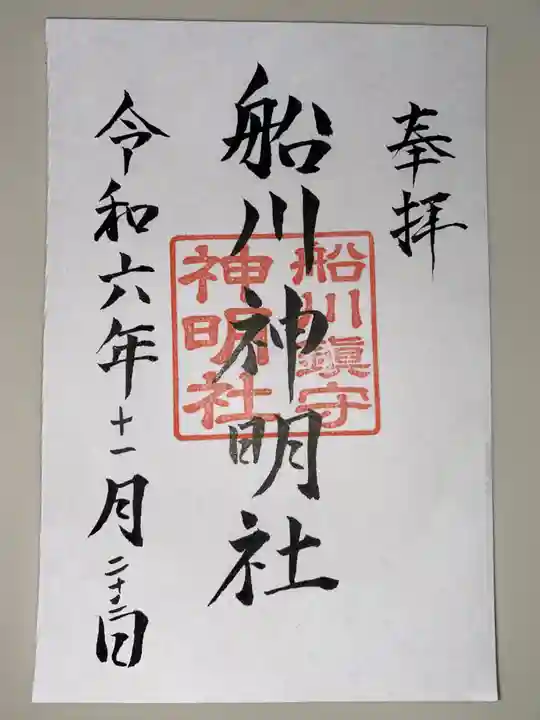 奉拝
船川神明社
船川鎮守
神明社
令和六年十一月二十二日